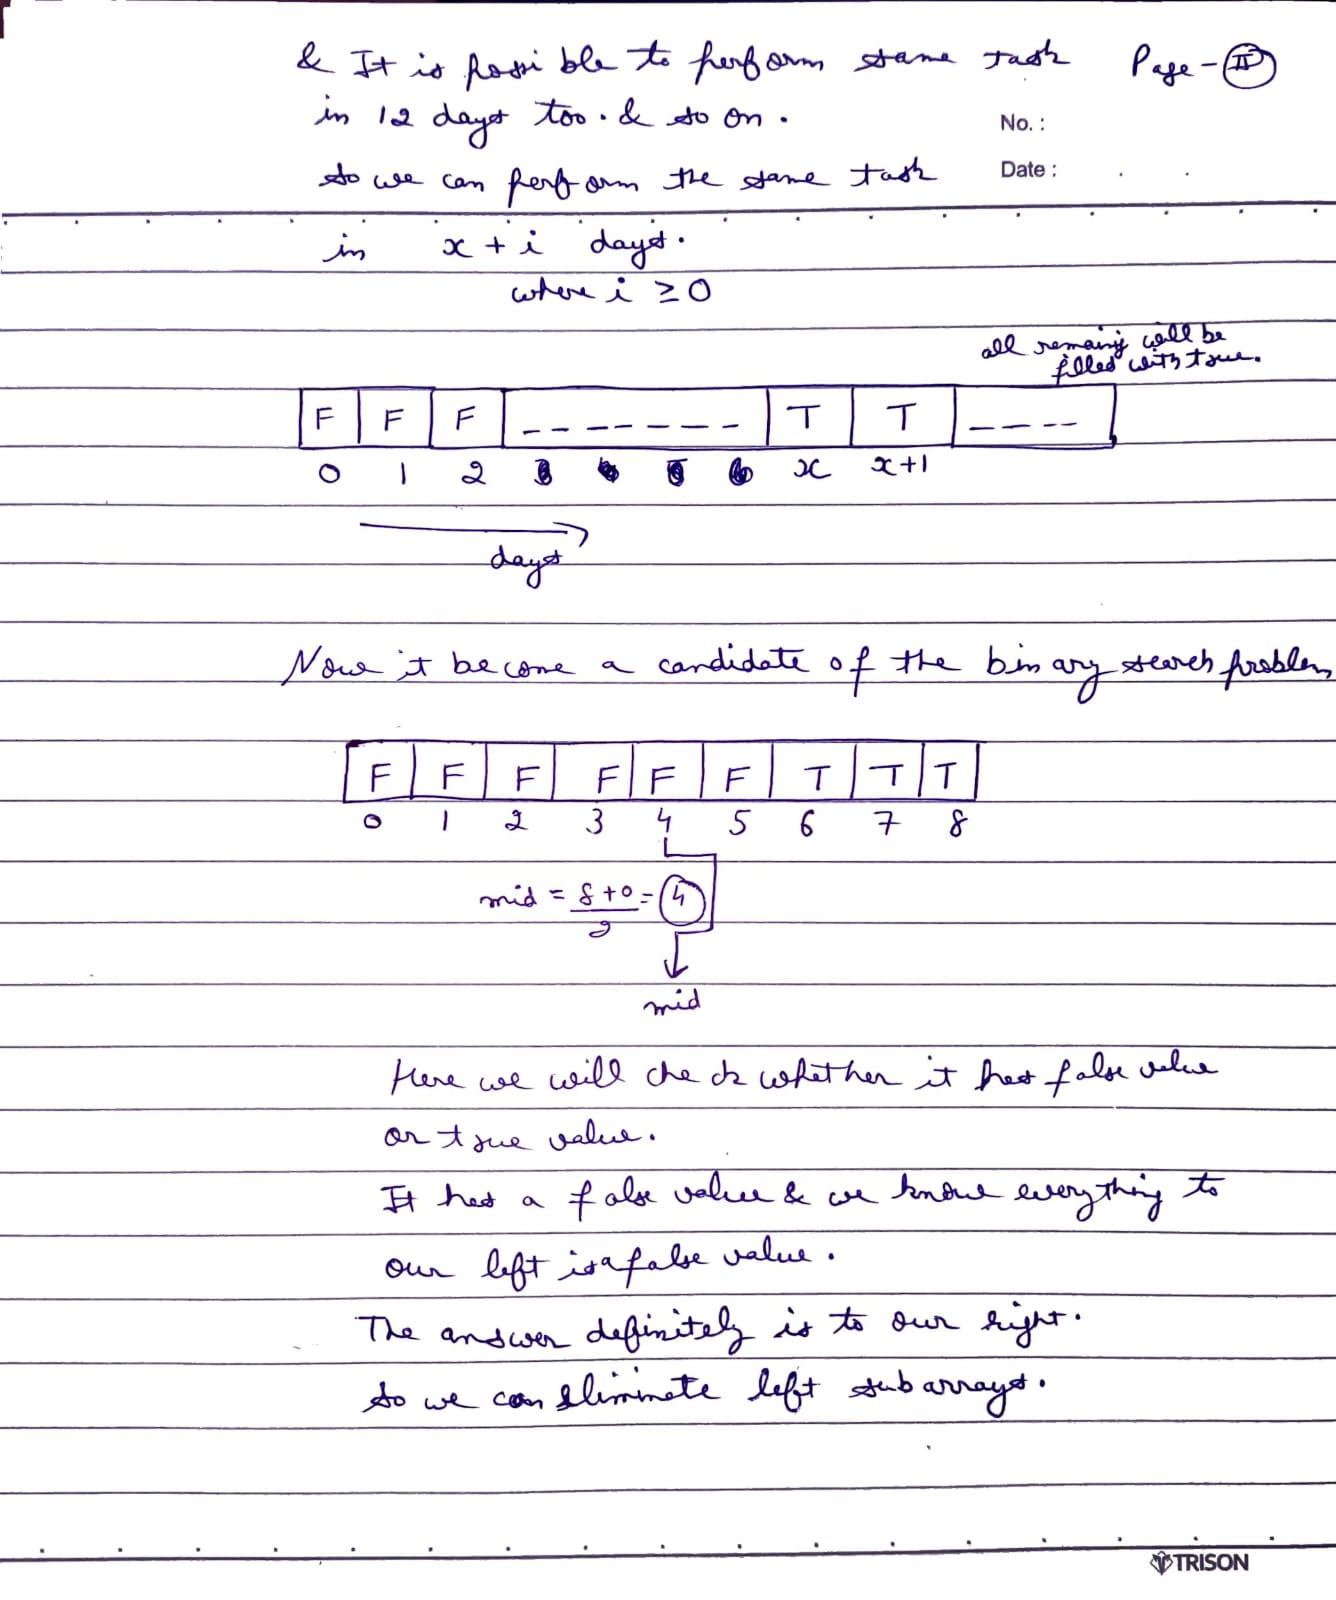 & It is possible to perform same task Page - II
in 12 days too. & so on.
No. :
so we can perform the same task
Date :
in x + i days.
where i ≥ 0
all remainig will be
filled with true.
F F F _ _ _ _ _ _ _ T T _ _ _ _
0 1 2 x x+1
days
Now it become a candidate of the binary search problem
F F F F F F T T T
0 1 2 3 4 5 6 7 8
mid = 8+0 = 4
2
mid
Here we will check whether it has false value
or true value.
It has a false value & we know everything to
our left is a false value.
The answer definitely is to our right.
so we can eliminate left subarrays.
TRISON